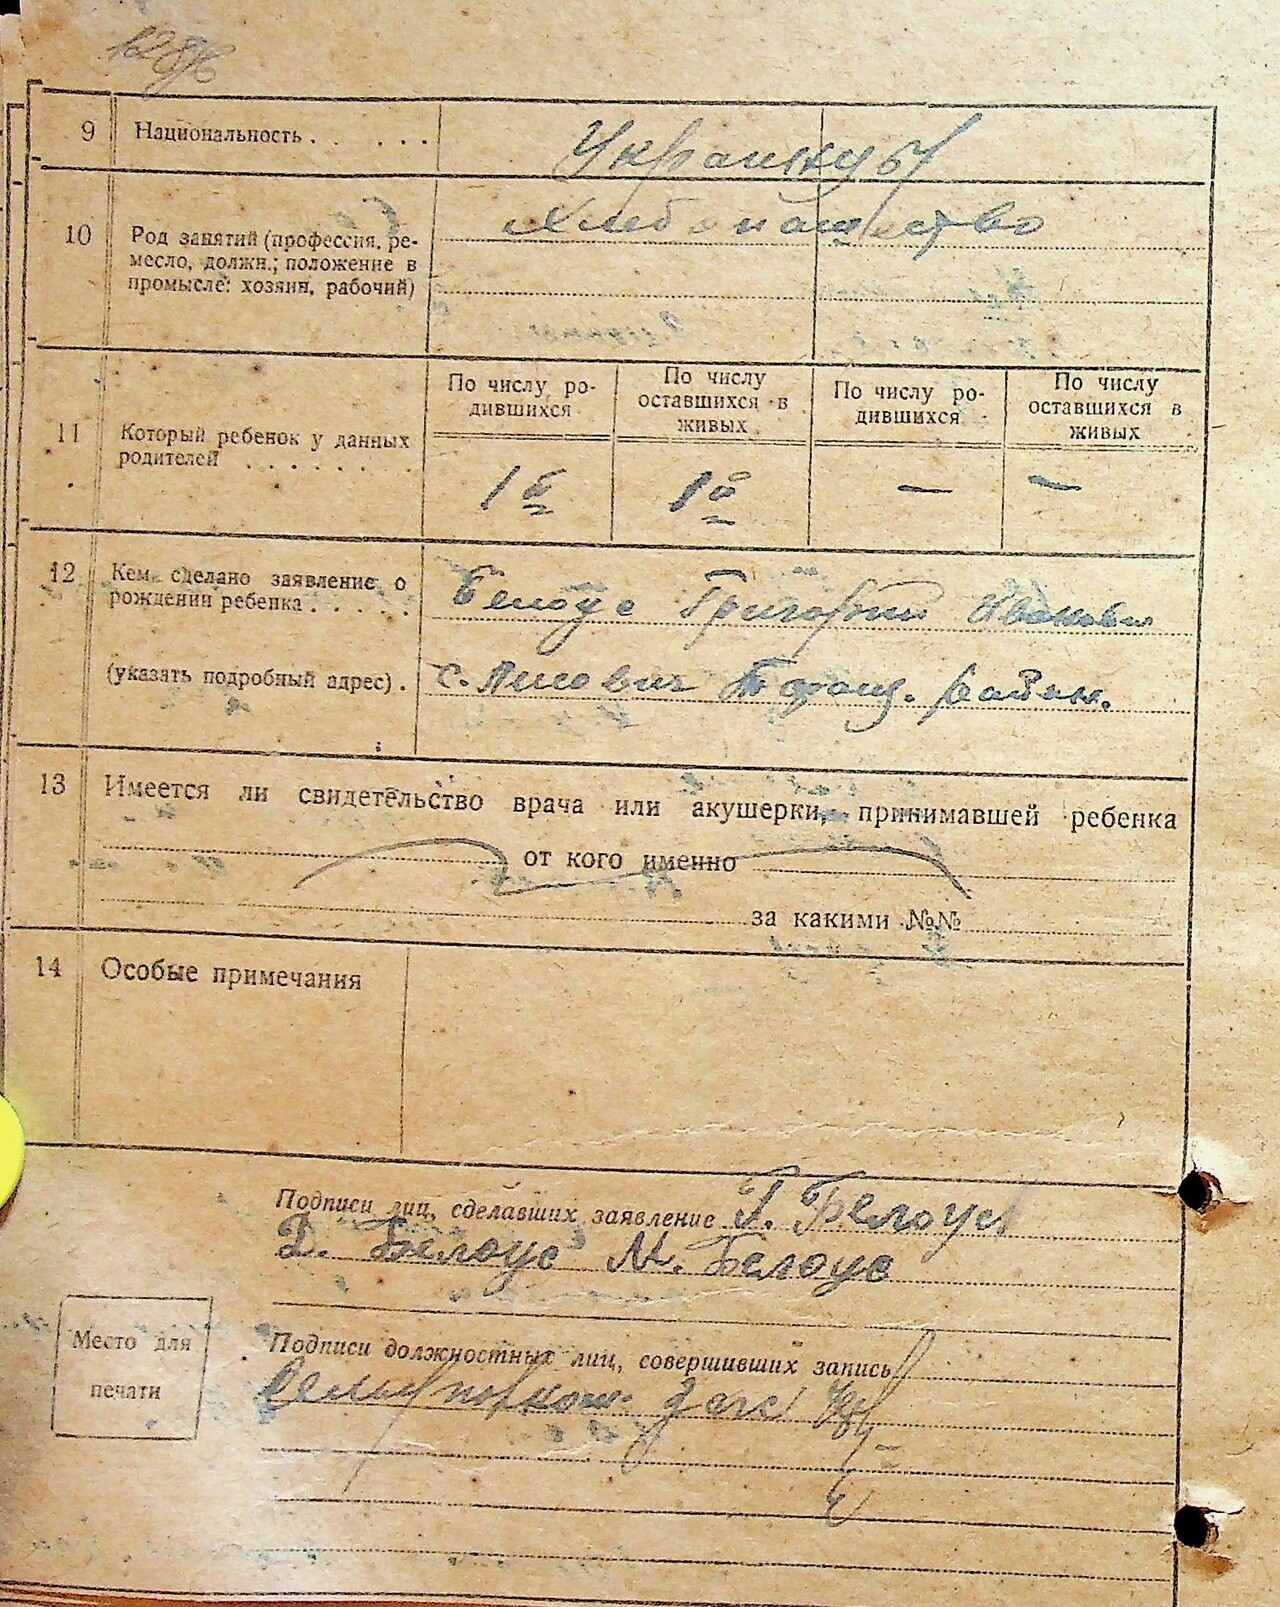 9 Национальность . . . . . . Украинцы
10 Род занятий (профессия, ре-
месло, должн.; положение в
промысле: хозяин, рабочий)
Хлебопашество
По числу ро-
дившихся
По числу
оставшихся в
живых
По числу ро-
дившихся
По числу
оставшихся в
живых
11 Который ребенок у данных
родителей . . . . . . . .
1й 1й — —
12 Кем сделано заявление о
рождении ребенка . . . . .
Белоус Григорий Иванович
(указать подробный адрес) . с. Лисович Таращ. район.
13 Имеется ли свидетельство врача или акушерки, принимавшей ребенка
от кого именно
за какими №№
14 Особые примечания
Подписи лиц, сделавших заявление Г. Белоус
Д. Белоус М. Белоус
Место для
печати
Подписи должностных лиц, совершивших запись